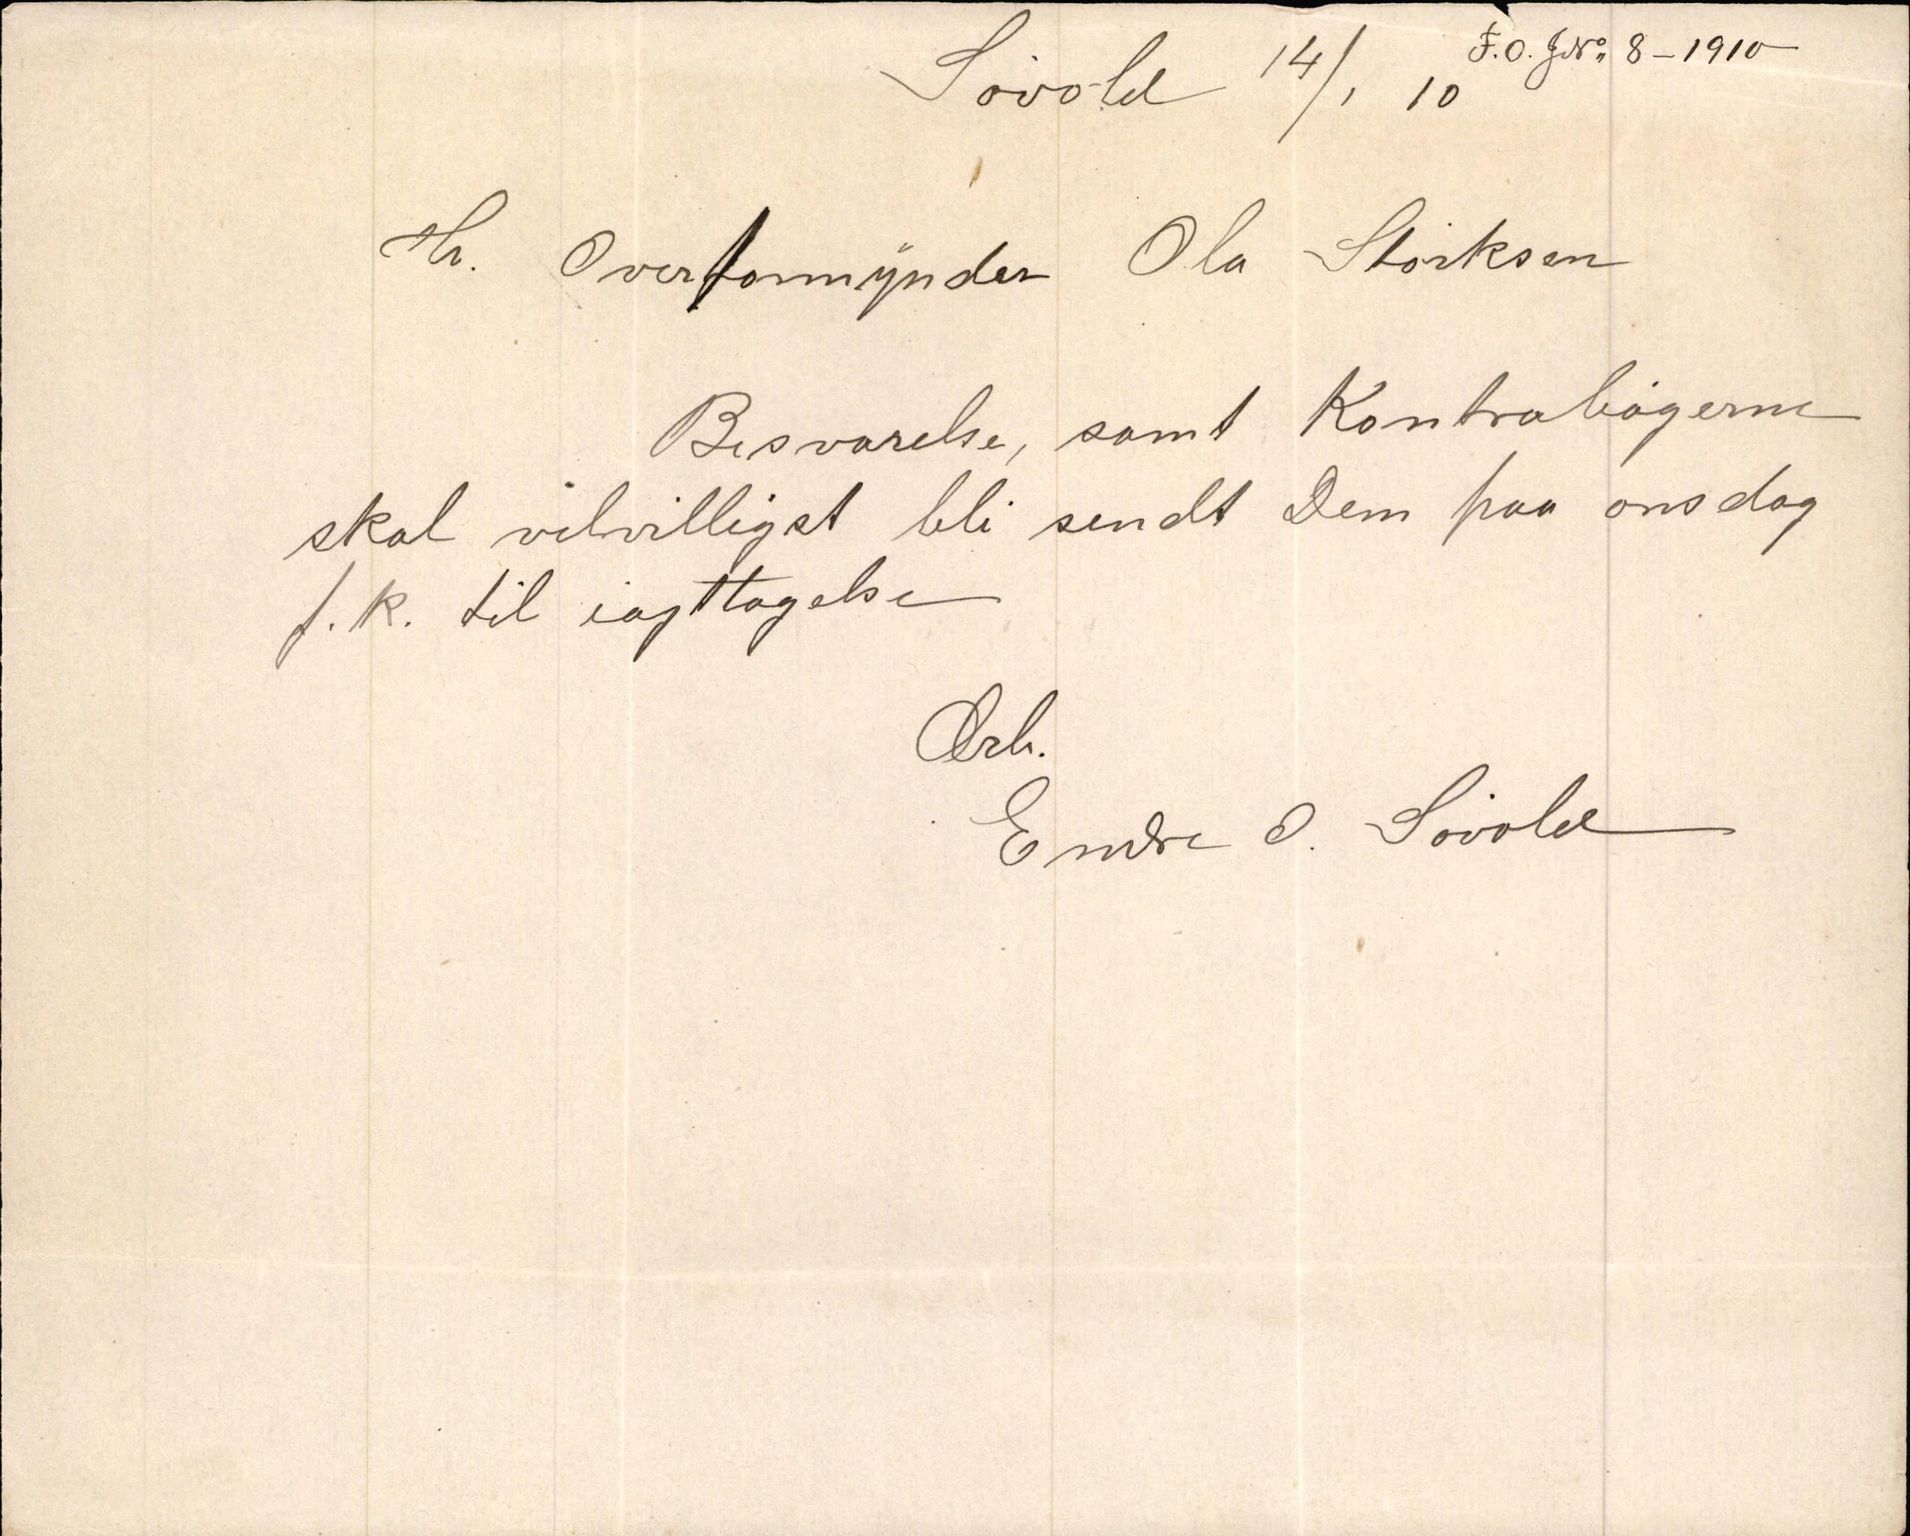 F.O. J.No. 8 – 1910
Søvold 14/1 10
Hr. Overformynder Ola Størksen
Besvarelse, samt Kontrabøgerne
skal velvilligst bli sendt Dem paa onsdag
f.k. til iagttagelse
Ærb.
Endre O. Søvold